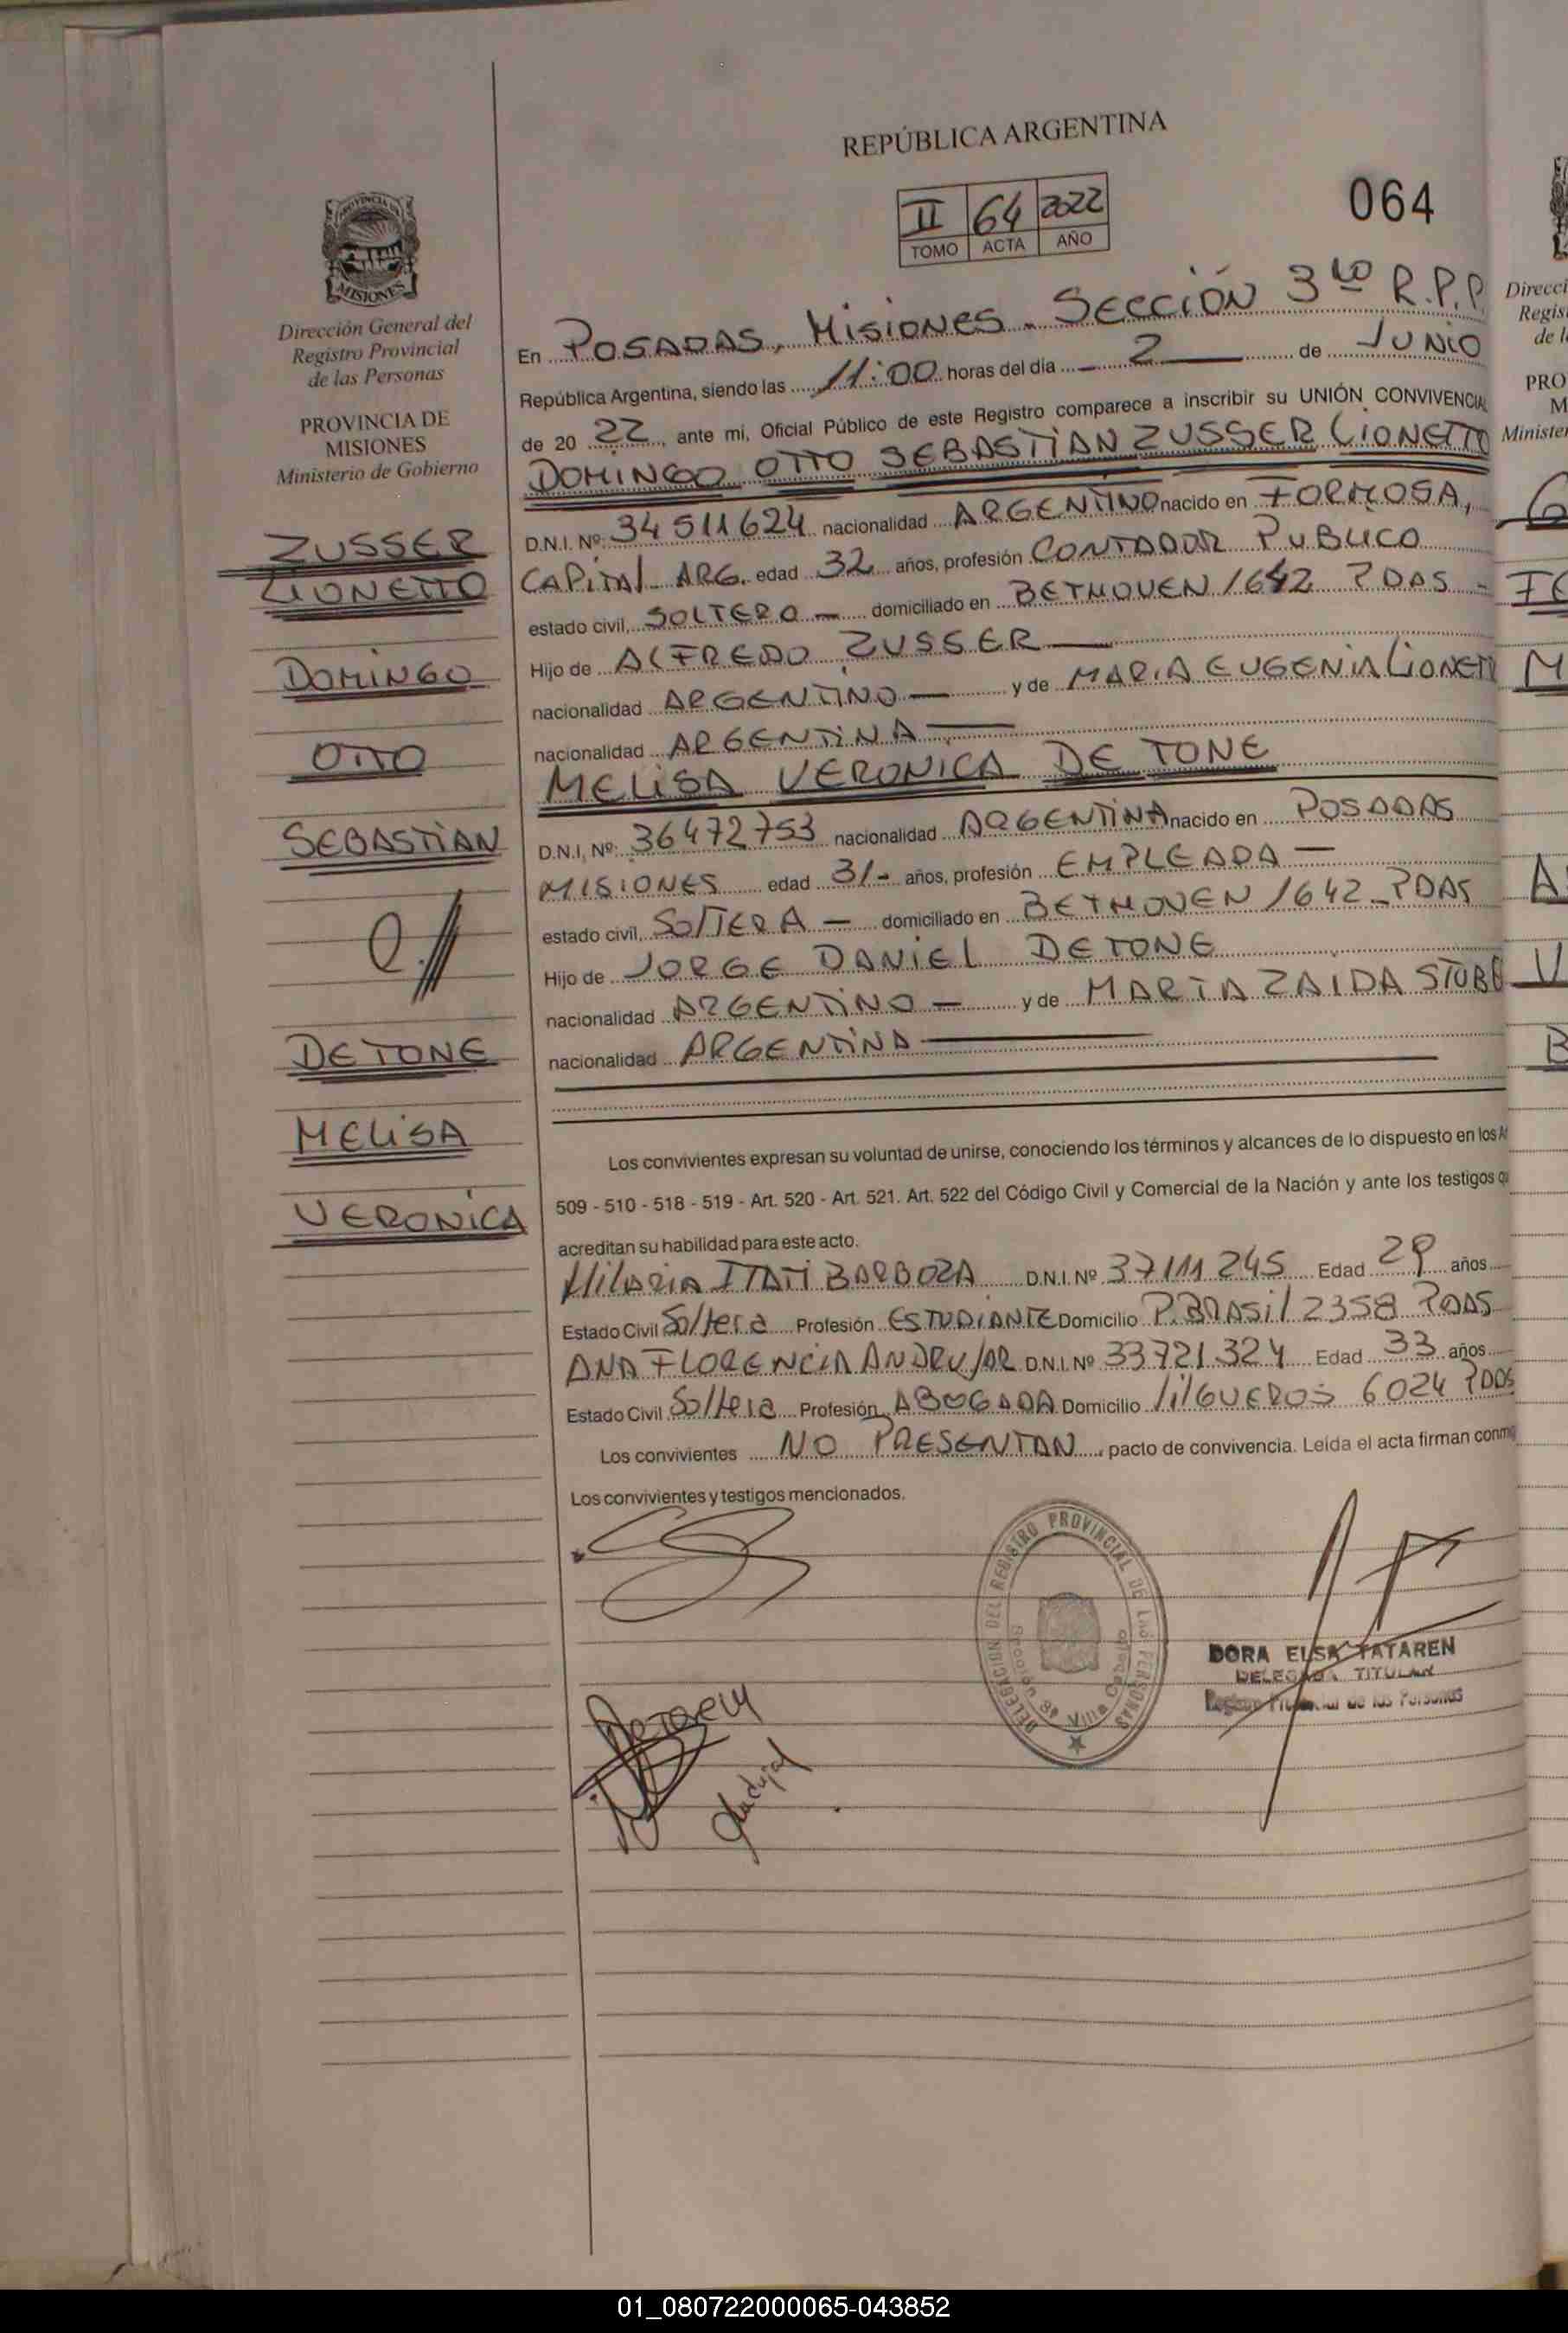 REPÚBLICA ARGENTINA
II 64 2022
TOMO ACTA AÑO
064
PROVINCIA DE
MISIONES
Dirección General del
Registro Provincial
de las Personas
PROVINCIA DE
MISIONES
Ministerio de Gobierno
ZUSSER
LIONETTO
DOMINGO
OTTO
SEBASTIAN
DE TONE
MELISA
VERONICA
En POSADAS, MISIONES - SECCIÓN 3ra R.P.P.
República Argentina, siendo las 11:00 horas del día 2 de JUNIO
de 20 22, ante mi, Oficial Público de este Registro comparece a inscribir su UNIÓN CONVIVENCIAL
DOMINGO OTTO SEBASTIAN ZUSSER LIONETTO
D.N.I. Nº: 34511624 nacionalidad ARGENTINO nacido en FORMOSA,
CAPITAL ARG. edad 32 años, profesión CONTADOR PUBLICO
estado civil, SOLTERO - domiciliado en BETHOVEN 1642 PDAS -
Hijo de ALFREDO ZUSSER
nacionalidad ARGENTINO - y de MARIA EUGENIA LIONETT
nacionalidad ARGENTINA
MELISA VERONICA DE TONE
D.N.I, Nº: 36472753 nacionalidad ARGENTINA nacido en POSADAS
MISIONES edad 31- años, profesión EMPLEADA -
estado civil, SOLTERA - domiciliado en BETHOVEN 1642 - PDAS
Hijo de JORGE DANIEL DE TONE
nacionalidad ARGENTINO - y de MARTA ZAIDA STUBE
nacionalidad ARGENTINA
Los convivientes expresan su voluntad de unirse, conociendo los términos y alcances de lo dispuesto en los A
509 - 510 - 518 - 519 - Art. 520 - Art. 521. Art. 522 del Código Civil y Comercial de la Nación y ante los testigos q
acreditan su habilidad para este acto.
HILARIA ITATI BARBOZA D.N.I. Nº 37111245 Edad 29 años
Estado Civil Soltera Profesión ESTUDIANTE Domicilio P. BRASIL 2358 PDAS
ANA FLORENCIA ANDRUJAR D.N.I. Nº 33721324 Edad 33 años
Estado Civil Soltera Profesión ABOGADA Domicilio JILGUEROS 6024 PDAS
Los convivientes NO PRESENTAN, pacto de convivencia. Leída el acta firman conm
Los convivientes y testigos mencionados.
DELEGACION DEL REGISTRO PROVINCIAL DE LAS PERSONAS
Sección 3ª Villa Cabello
DORA ELSA TATAREN
DELEGADA TITULAR
Registro Provincial de las Personas
Direcci
Regis
de l
PRO
M
Minister
01_080722000065-043852